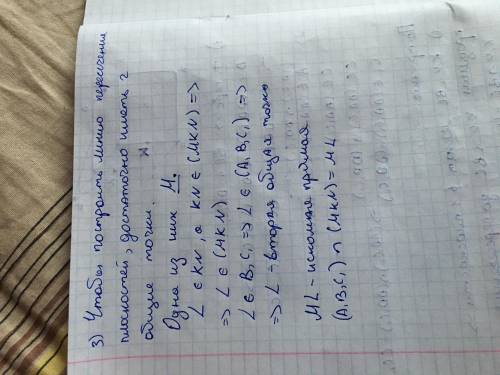 3) Чтобы построить линию пересечения
плоскостей, достаточно иметь 2
общие точки.
Одна из них M.
L ∈ KN, а KN ∈ (MKN) =>
=> L ∈ (MKN)
L ∈ B₁C₁ => L ∈ (A₁B₁C₁) =>
=> L - вторая общая точка
ML - искомая прямая
(A₁B₁C₁) ∩ (MKN) = ML